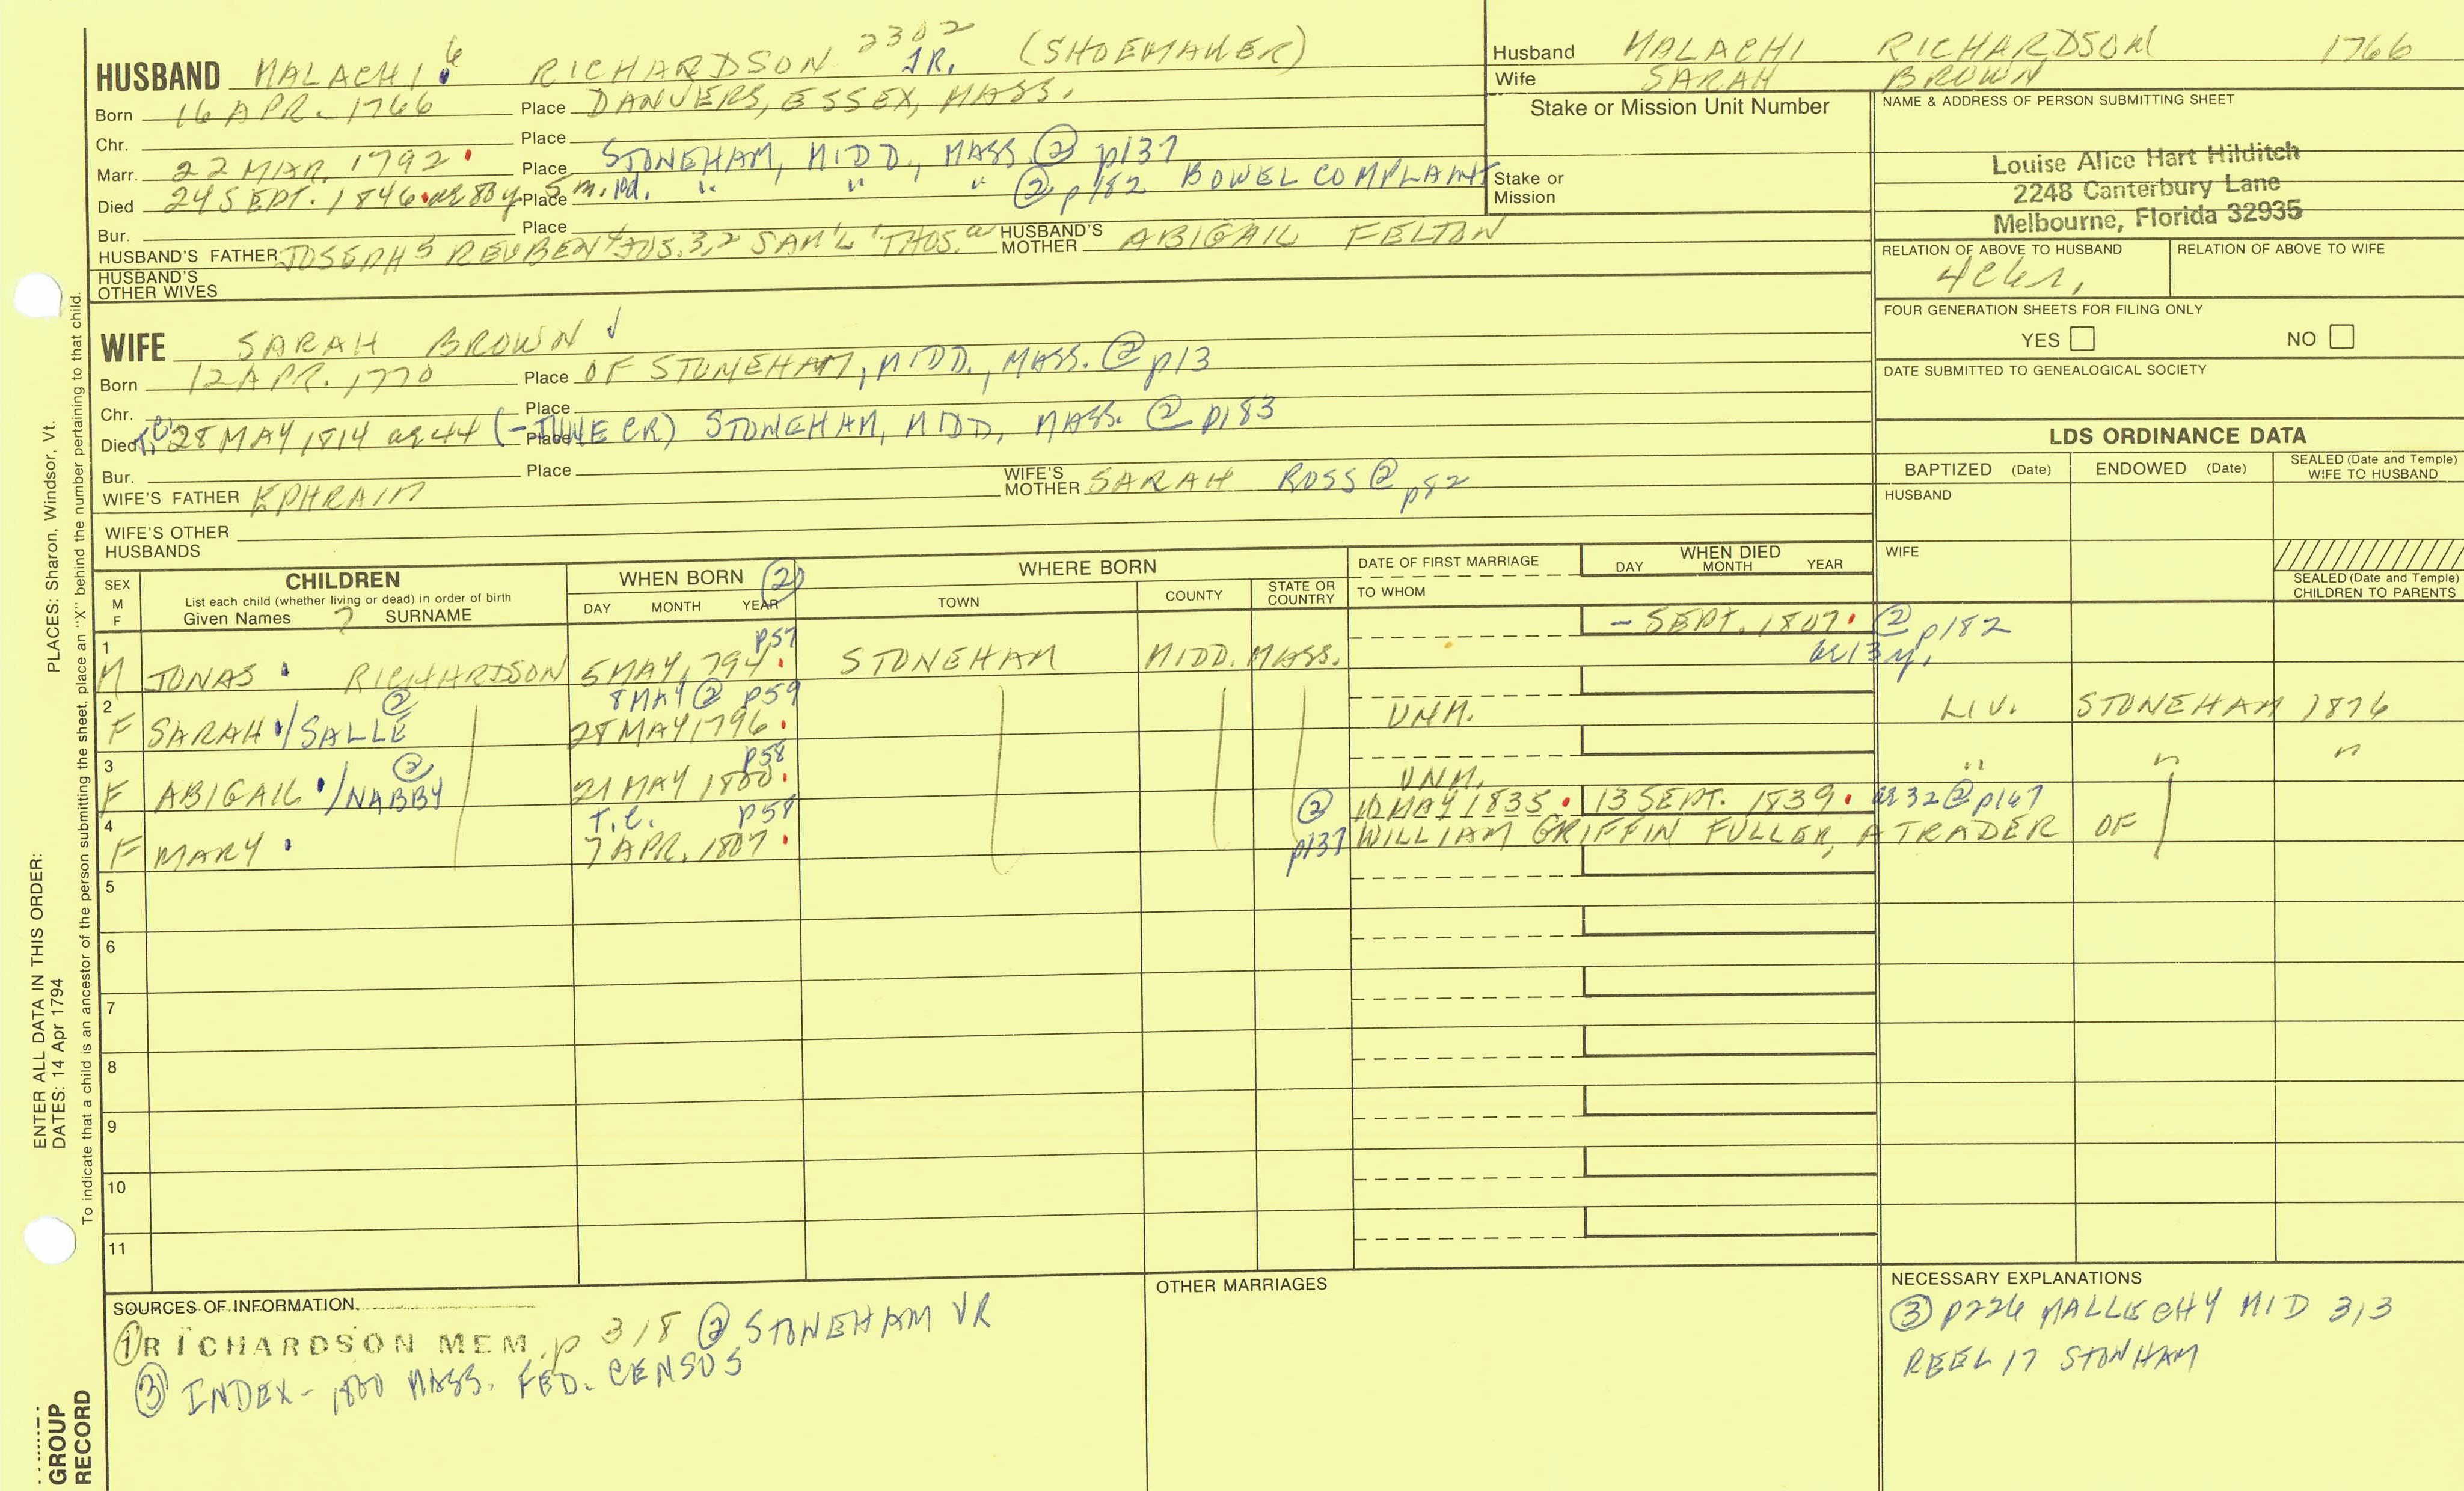 HUSBAND MALACHI 6 RICHARDSON 2302 JR. (SHOEMAKER)
Born 16 APR. 1766 Place DANVERS, ESSEX, MASS.
Chr. Place
Marr. 22 MAR. 1792 Place STONEHAM, MIDD., MASS @ p137
Died 24 SEPT. 1846 ae 80 y. Place 5 m. " " " @ p182 BOWEL COMPLAINT
Bur. Place
HUSBAND'S FATHER JOSEPH 5 REUBEN 4 JOS. 3,2 SAM'L 1 THOS. a HUSBAND'S MOTHER ABIGAIL FELTON
HUSBAND'S OTHER WIVES
WIFE SARAH BROWN
Born 12 APR. 1770 Place OF STONEHAM, MIDD., MASS. @ p13
Chr. Place
Died 28 MAY 1814 ae 44 (-JUNE CR) Place STONEHAM, MIDD, MASS. @ p183
Bur. Place
WIFE'S FATHER EPHRAIM WIFE'S MOTHER SARAH ROSS @ p82
WIFE'S OTHER HUSBANDS
Husband MALACHI RICHARDSON 1766
Wife SARAH BROWN
Stake or Mission Unit Number
Stake or Mission
NAME & ADDRESS OF PERSON SUBMITTING SHEET
Louise Alice Hart Hilditch
2248 Canterbury Lane
Melbourne, Florida 32935
RELATION OF ABOVE TO HUSBAND RELATION OF ABOVE TO WIFE
FOUR GENERATION SHEETS FOR FILING ONLY
YES NO
DATE SUBMITTED TO GENEALOGICAL SOCIETY
LDS ORDINANCE DATA
BAPTIZED (Date) ENDOWED (Date) SEALED (Date and Temple) WIFE TO HUSBAND
HUSBAND
WIFE
SEALED (Date and Temple) CHILDREN TO PARENTS
SEX M F CHILDREN WHEN BORN 2 WHERE BORN DATE OF FIRST MARRIAGE WHEN DIED
List each child (whether living or dead) in order of birth
Given Names ? SURNAME DAY MONTH YEAR TOWN COUNTY STATE OR COUNTRY TO WHOM DAY MONTH YEAR
1 p57 - SEPT. 1807 @ p182
M JONAS RICHARDSON 5 MAY 1794 STONEHAM MIDD. MASS. ae 13 y.
2 8 MAY @ p59
F SARAH / SALLE 2 28 MAY 1796 UNM. LIV. STONEHAM 1876
3 p58
F ABIGAIL / NABBY 2 21 MAY 1800 UNM. " " "
4 T.C. p58 2 10 MAY 1835 13 SEPT. 1839 ae 32 @ p167
F MARY 7 APR. 1807 p137 WILLIAM GRIFFIN FULLER, A TRADER OF
5
6
7
8
9
10
11
SOURCES OF INFORMATION
1 RICHARDSON MEM. p 318 2 STONEHAM VR
3 INDEX - 1800 MASS. FED. CENSUS
OTHER MARRIAGES
NECESSARY EXPLANATIONS
3 p226 MALLECHY MID 313
REEL 17 STONHAM
ENTER ALL DATA IN THIS ORDER:
DATES: 14 Apr 1794 PLACES: Sharon, Windsor, Vt.
To indicate that a child is an ancestor of the person submitting the sheet, place an "X" behind the number pertaining to that child.
GROUP
RECORD